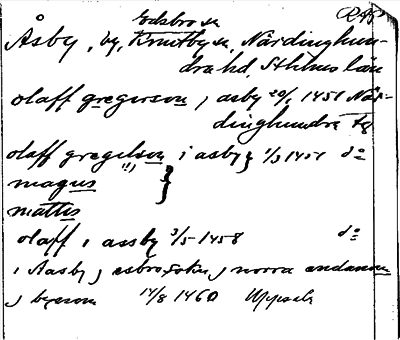 Edsbro sn
Åsby, by, Knutby sn, Närdinghun-
dra hd, Sthlms län
olaff gregerson i asby 20/1 1451 När-
dinghundra tg
olaff gregelson i asby 1/3 1451 do
magnus
mattis
olaff i assby 3/5 1458 do
i Aasby j esbro sokn j norra endanom
j byenom 14/8 1460 Uppsala